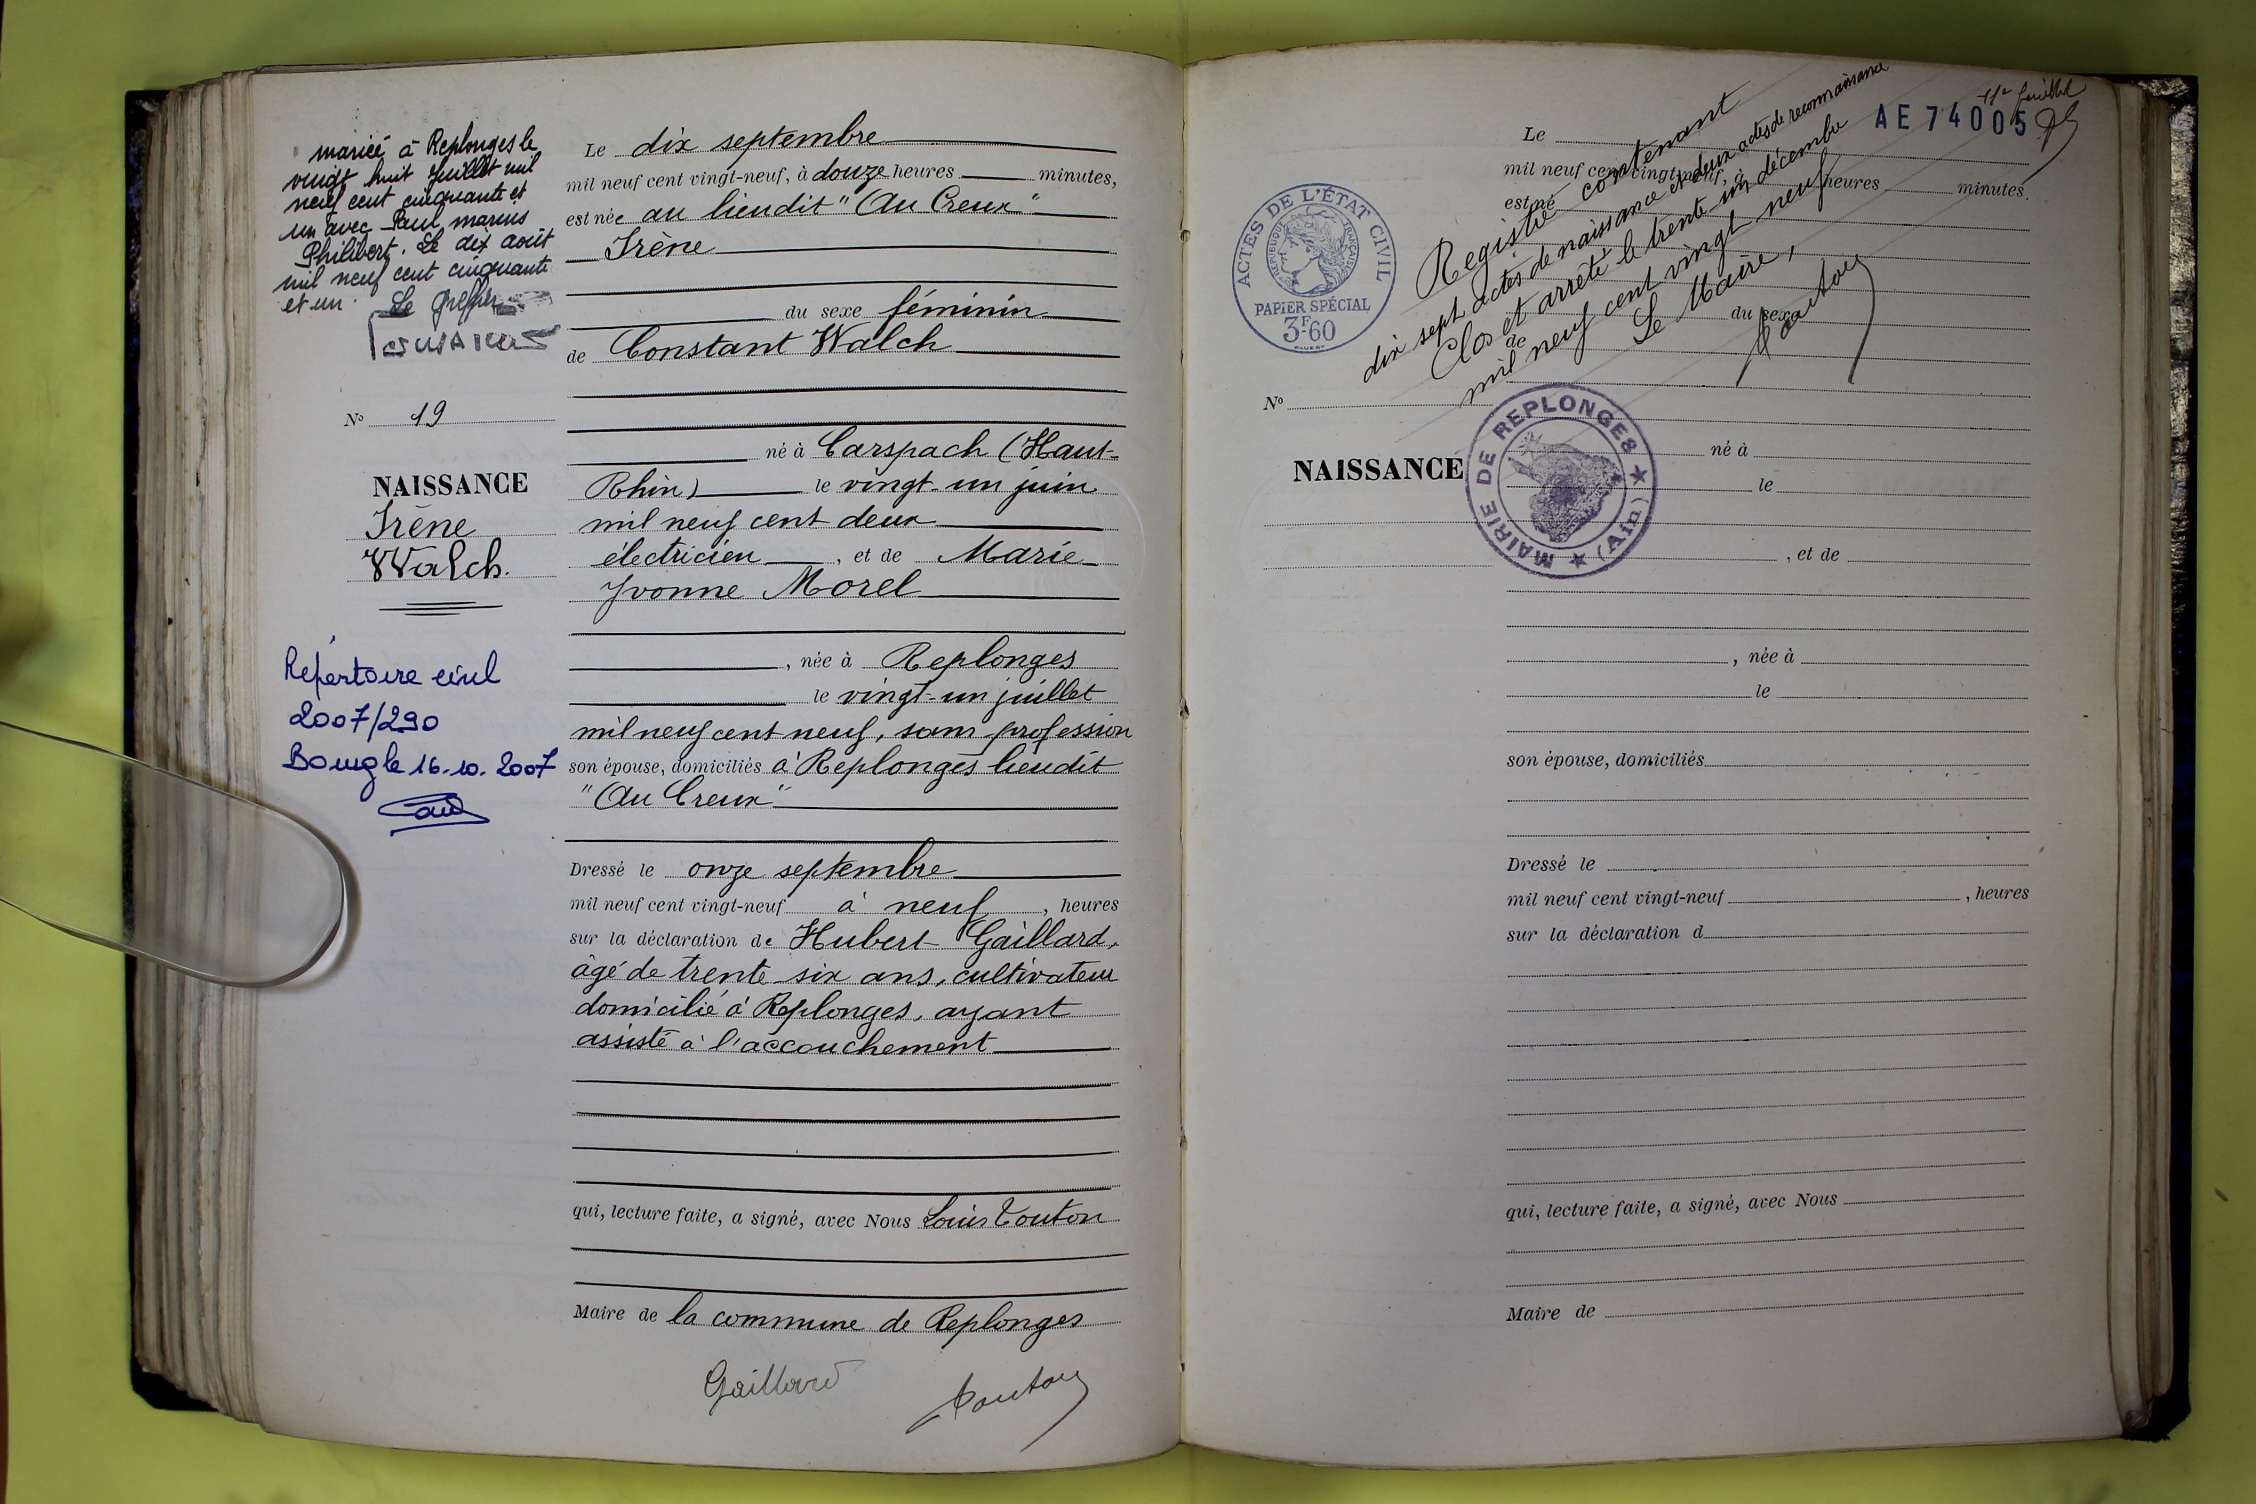 mariée à Replonges le
vingt huit juillet mil
neuf cent cinquante et
un avec Paul marius
Philibert. Le dix août
mil neuf cent cinquante
et un. Le Greffier
No 19
NAISSANCE
Irène
Walch.
Répertoire civil
2007/290
Bourg le 16.10.2007
Le dix septembre
mil neuf cent vingt-neuf, à douze heures minutes,
est née au lieudit "Au Creux"
Irène
du sexe féminin
de Constant Walch
né à Carspach (Haut-
Rhin) le vingt-un juin
mil neuf cent deux
électricien, et de Marie
Yvonne Morel
, née à Replonges
le vingt-un juillet
mil neuf cent neuf, sans profession
son épouse, domiciliés à Replonges lieudit
"Au Creux"
Dressé le onze septembre
mil neuf cent vingt-neuf à neuf, heures
sur la déclaration de Hubert Gaillard,
âgé de trente-six ans, cultivateur
domicilié à Replonges, ayant
assisté à l'accouchement
qui, lecture faite, a signé, avec Nous Louis Touton
Maire de la commune de Replonges
Gaillard
Touton
11e feuillet
AE 74005
ACTES DE L'ÉTAT CIVIL
RÉPUBLIQUE FRANÇAISE
PAPIER SPÉCIAL
3F60
Registre contenant
dix sept actes de naissance et deux actes de reconnaissance
Clos et arrêté le trente-un décembre
mil neuf cent vingt neuf
Le Maire,
Touton
MAIRIE DE REPLONGES
(Ain)
No
NAISSANCE
Le
mil neuf cent vingt-neuf, à heures minutes,
est né
du sexe
de
né à
le
, et de
, née à
le
son épouse, domiciliés
Dressé le
mil neuf cent vingt-neuf , heures
sur la déclaration d
qui, lecture faite, a signé, avec Nous
Maire de